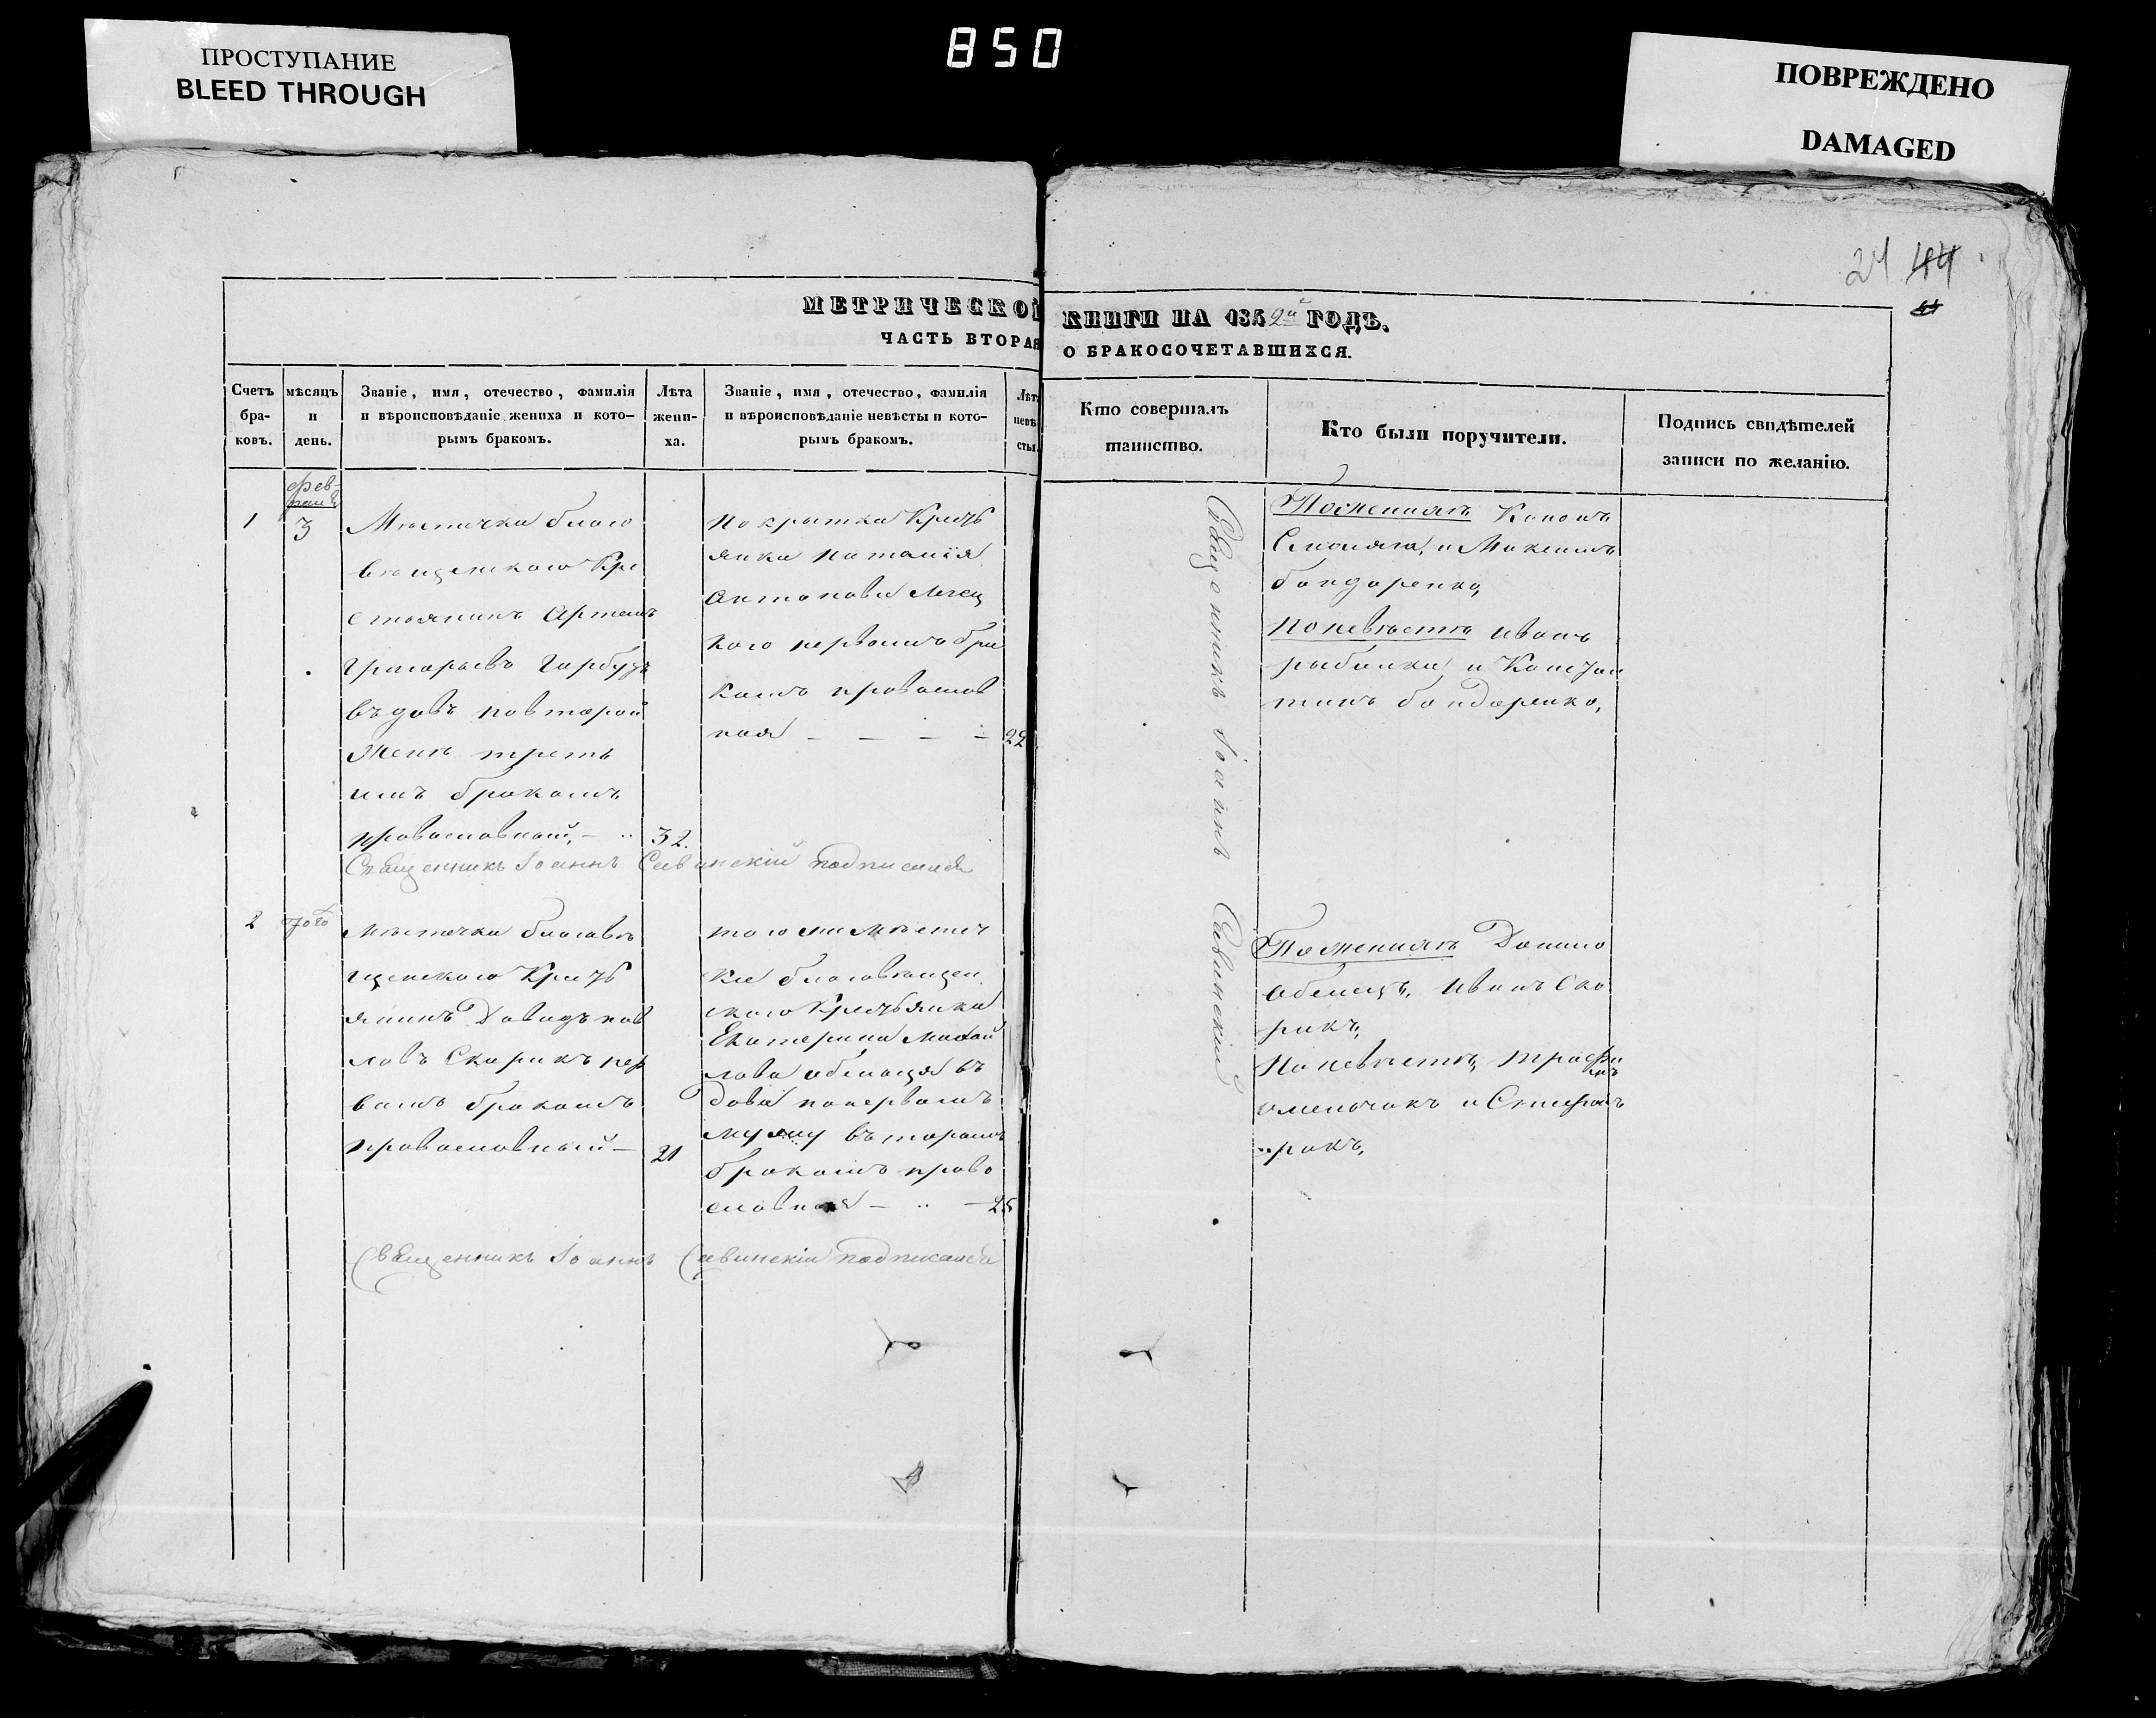 850
ПРОСТУПАНИЕ
BLEED THROUGH
ПОВРЕЖДЕНО
DAMAGED
24 44
МЕТРИЧЕСКОЙ КНИГИ НА 1852й ГОДЪ.
ЧАСТЬ ВТОРАЯ О БРАКОСОЧЕТАВШИХСЯ.
Счетъ бра-ковъ.
мѣсяцъ и день.
Званіе, имя, отечество, фамилія
и вѣроисповѣданіе жениха и кото-
рымъ бракомъ.
Лѣта жени-ха.
Званіе, имя, отечество, фамилія
и вѣроисповѣданіе невѣсты и кото-
рымъ бракомъ.
Лѣта невѣ-сты.
Кто совершалъ
таинство.
Кто были поручители.
Подпись свидѣтелей
записи по желанію.
1
3
Мѣстечка благо
вѣщенскаго Кре
стьянинъ Артемъ
Григорьевъ Гарбузъ
въдовъ повторой
Женѣ треть
имъ бракомъ
православный,
32.
Покрытка Кресть
янка Наталія
Антонова
кого первымъ бра
комъ православ
ная
22
Пожениху Кононъ
и Максимъ
бондаренко,
Поневѣсте Иванъ
рыбалка, и Констан
тинъ бондаренко,
Священникъ Іоаннъ Савинскій
Священникъ Іоаннъ Савинскій подписался
2
того
Мѣстечка благовѣ
щенского Кресть
янинъ Давидъ пав
ловъ Скорикъ пер
вымъ бракомъ
православный
21
того жъ Мѣстеч
ка благовѣщен
ского Крестьянка
Екатерина Михай
лова въ
дова попервомъ
мужу въторымъ
бракомъ право
славная
25
Пожениху Данило
Иванъ Ско
рикъ,
Поневѣсте,
и
Священникъ Іоаннъ Савинскій подписался